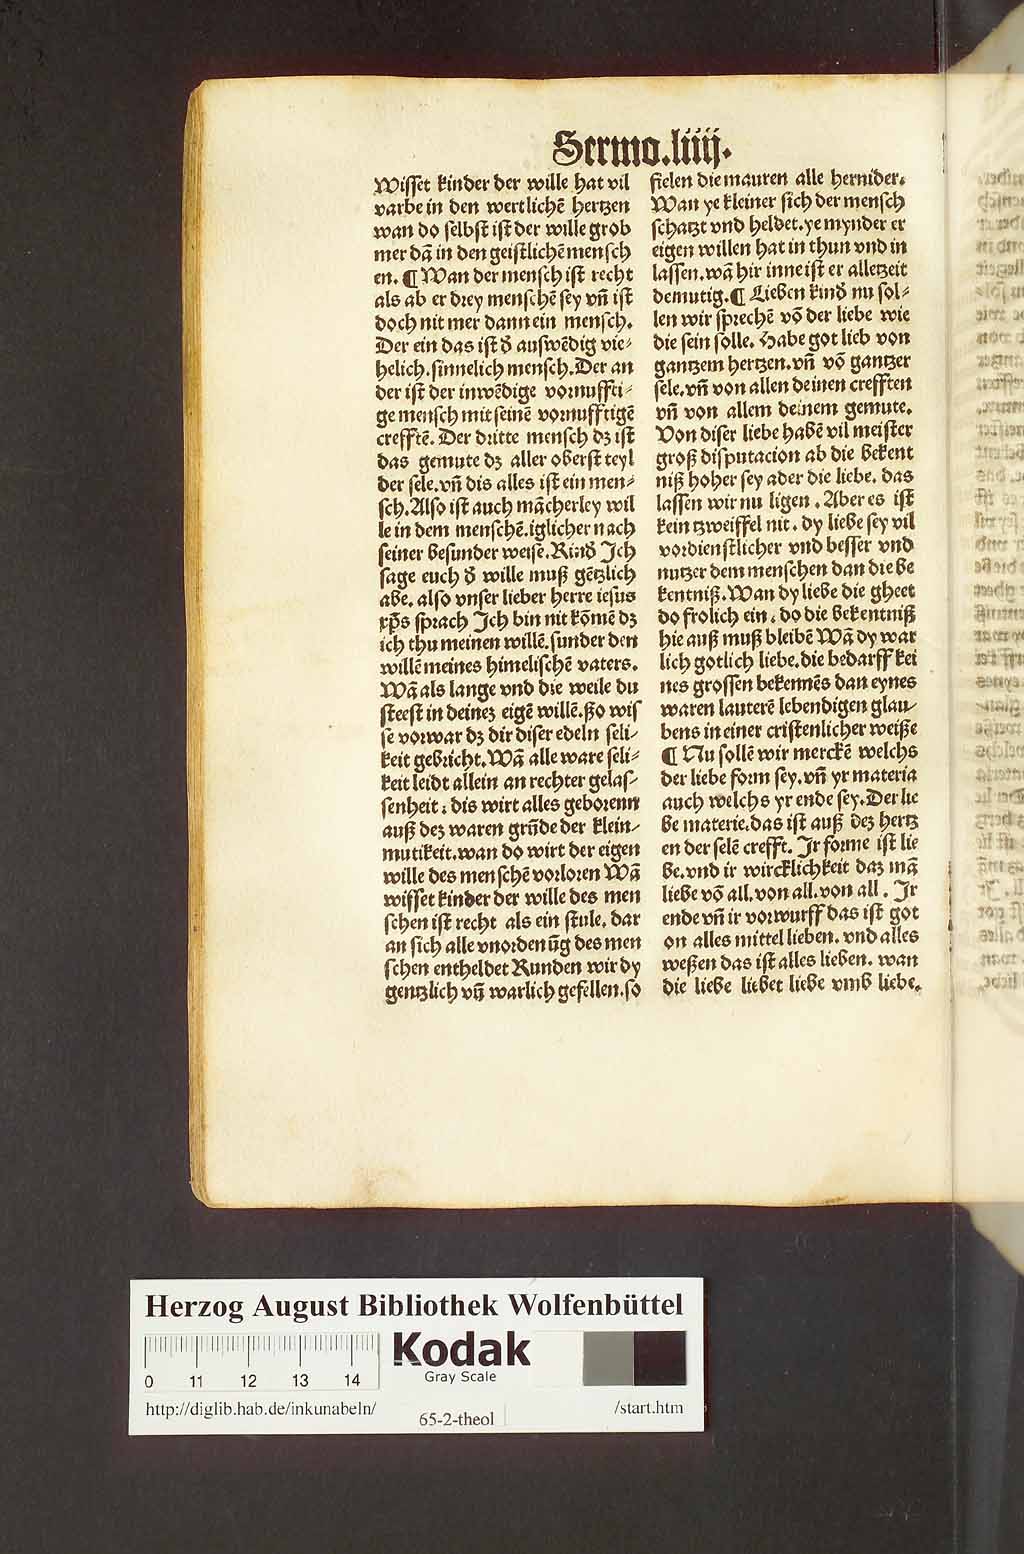 Sermo.liiij.
Wisset kinder der wille hat vil
varbe in den wertlichē hertzen
wan do selbst ist der wille grob
mer dā in den geistlichē mensch
en. ¶ Wan der mensch ist recht
als ab er drey menschē sey vñ ist
doch nit mer dann ein mensch.
Der ein das ist d̄ auswēdig vie⸗
helich.sinnelich mensch.Der an
der ist der inwēdige vornuffti⸗
ge mensch mit seinē vornufftigē
crefftē. Der dritte mensch dz ist
das gemute dz aller oberst teyl
der sele.vñ dis alles ist ein men⸗
sch.Also ist auch mācherley wil
le in dem menschē.iglicher nach
seiner besunder weise.Kind̄ Ich
sage euch d̄ wille muß gētzlich
abe. also vnser lieber herre iesus
xp̄s sprach Ich bin nit kōmē dz
ich thu meinen willē.sunder den
willē meines himelischē vaters.
Wā als lange vnd die weile du
steest in deinez eigē willē.ßo wis
se vorwar dz dir diser edeln seli⸗
keit gebricht.Wā alle ware seli⸗
keit leidt allein an rechter gelas⸗
senheit: dis wirt alles geborenn
auß dez waren grūde der klein⸗
mutikeit.wan do wirt der eigen
wille des menschē vorloren Wā
wisset kinder der wille des men
schen ist recht als ein stule. dar
an sich alle vnordenūg des men
schen entheldet Kunden wir dy
gentzlich vñ warlich gefellen.so
fielen die mauren alle hernider.
Wan ye kleiner sich der mensch
schatzt vnd heldet.ye mynder er
eigen willen hat in thun vnd in
lassen.wā hir inne ist er alletzeit
demutig.¶ Lieben kind̄ nu sol⸗
len wir sprechē vō der liebe wie
die sein solle. Habe got lieb von
gantzem hertzen.vñ vō gantzer
sele.vñ von allen deinen crefften
vñ von allem deinem gemute.
Von diser liebe habē vil meister
groß disputacion ab die bekent
niß hoher sey ader die liebe. das
lassen wir nu ligen. Aber es ist
kein tzweiffel nit. dy liebe sey vil
vordienstlicher vnd besser vnd
nutzer dem menschen dan die be
kentniß.Wan dy liebe die gheet
do frolich ein: do die bekentniß
hie auß muß bleibē Wā dy war
lich gotlich liebe.die bedarff kei
nes grossen bekennēs dan eynes
waren lauterē lebendigen glau⸗
bens in einer cristenlicher weiße
¶ Nu sollē wir merckē welchs
der liebe form sey.vñ yr materia
auch welchs yr ende sey.Der lie
be materie.das ist auß dez hertz
en der selē crefft. Ir forme ist lie
be.vnd ir wircklichkeit daz mā
liebe vō all.von all.von all. Ir
ende vñ ir vorwurff das ist got
on alles mittel lieben. vnd alles
weßen das ist alles lieben. wan
die liebe liebet liebe vmb liebe.
Herzog August Bibliothek Wolfenbüttel
0 11 12 13 14
Kodak
Gray Scale
http://diglib.hab.de/inkunabeln/ 65-2-theol /start.htm